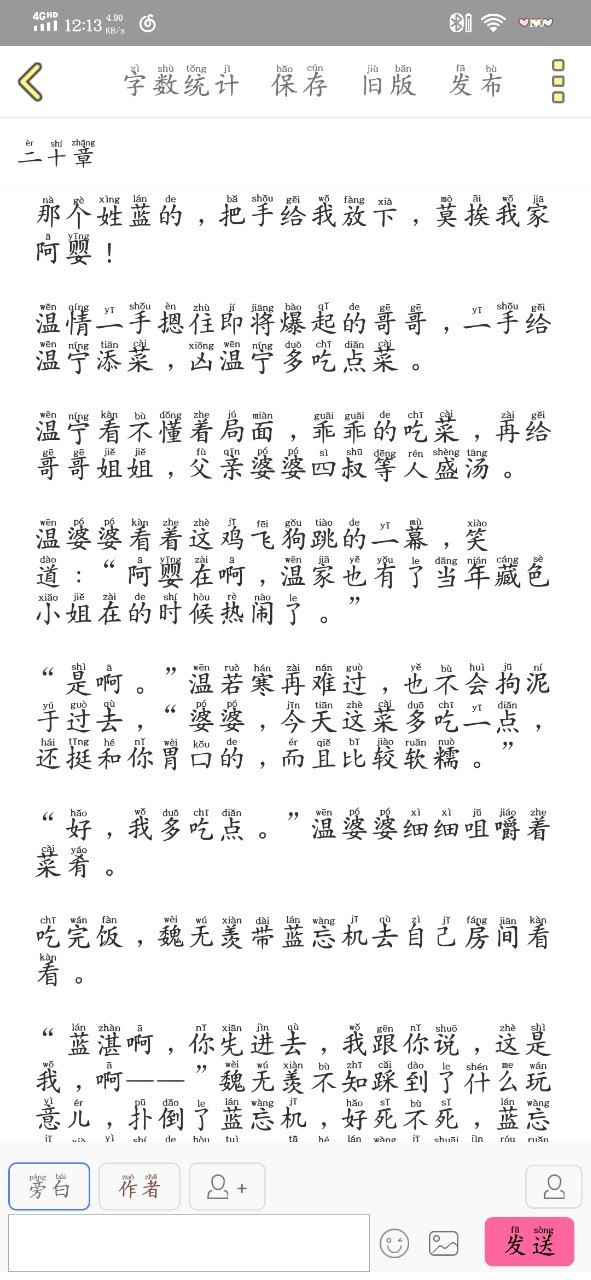 4G HD 12:13 4.90 KB/s
字数统计 保存 旧版 发布
二十章
那个姓蓝的，把手给我放下，莫挨我家
阿婴！
温情一手摁住即将爆起的哥哥，一手给
温宁添菜，凶温宁多吃点菜。
温宁看不懂着局面，乖乖的吃菜，再给
哥哥姐姐，父亲婆婆四叔等人盛汤。
温婆婆看着这鸡飞狗跳的一幕，笑
道：“阿婴在啊，温家也有了当年藏色
小姐在的时候热闹了。”
“是啊。”温若寒再难过，也不会拘泥
于过去，“婆婆，今天这菜多吃一点，
还挺和你胃口的，而且比较软糯。”
“好，我多吃点。”温婆婆细细咀嚼着
菜肴。
吃完饭，魏无羡带蓝忘机去自己房间看
看。
“蓝湛啊，你先进去，我跟你说，这是
我，啊——”魏无羡不知踩到了什么玩
意儿，扑倒了蓝忘机，好死不死，蓝忘
旁白 作者 +
发送